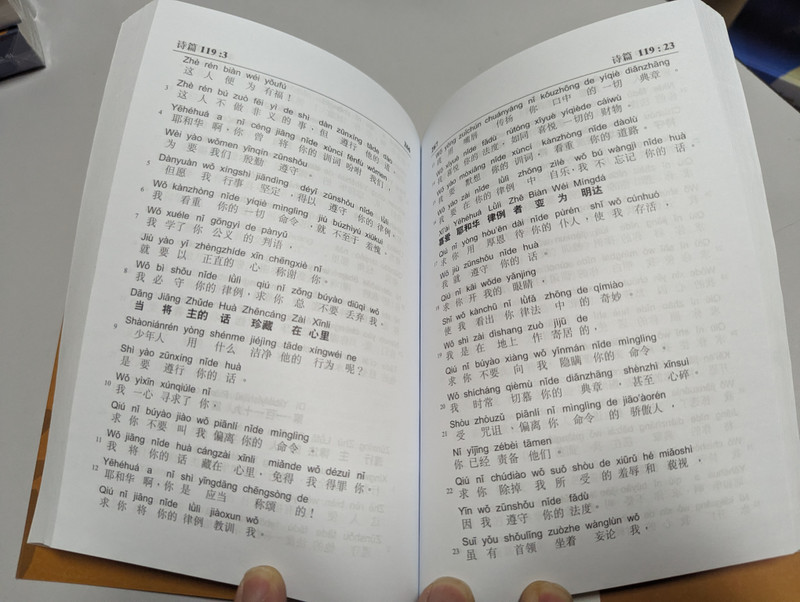 诗篇 119:3
Zhè rén biàn wéi yǒufú
这 人 便 为 有福！
3 Zhè rén bú zuò fēi yì de shì dàn zūnxíng tāde dào
这 人 不 做 非 义 的 事，但 遵行 他的 道。
4 Yēhéhuá a nǐ céng jiāng nǐde xùncí fēnfù wǒmen
耶和华 啊，你 曾 将 你的 训词 吩咐 我们，
Wèi yào wǒmen yīnqín zūnshǒu
为 要 我们 殷勤 遵守。
5 Dànyuàn wǒ xíngshì jiāndìng déyǐ zūnshǒu nǐde lǜlì
但愿 我 行事 坚定，得以 遵守 你的 律例。
6 Wǒ kànzhòng nǐde yíqiè mìnglìng jiù búzhìyú xiūkuì
我 看重 你的 一切 命令，就 不至于 羞愧。
7 Wǒ xuéle nǐ gōngyì de pànyǔ
我 学了 你 公义 的 判语，
Jiù yào yǐ zhèngzhíde xīn chēngxiè nǐ
就 要 以 正直的 心 称谢 你。
8 Wǒ bì shǒu nǐde lǜlì qiú nǐ zǒng búyào diūqì wǒ
我 必 守 你的 律例，求 你 总 不要 丢弃 我。
Dāng Jiāng Zhǔde Huà Zhēncáng Zài Xīnlǐ
当 将 主的 话 珍藏 在 心里
9 Shàoniánrén yòng shénme jiéjìng tāde xíngwéi ne
少年人 用 什么 洁净 他的 行为 呢？
Shì yào zūnxíng nǐde huà
是 要 遵行 你的 话。
10 Wǒ yìxīn xúnqiúle nǐ
我 一心 寻求了 你，
Qiú nǐ búyào jiào wǒ piānlí nǐde mìnglìng
求 你 不要 叫 我 偏离 你的 命令。
11 Wǒ jiāng nǐde huà cángzài xīnlǐ miǎnde wǒ dézuì nǐ
我 将 你的 话 藏在 心里，免得 我 得罪 你。
12 Yēhéhuá a nǐ shì yīngdāng chēngsòng de
耶和华 啊，你 是 应当 称颂 的！
Qiú nǐ jiāng nǐde lǜlì jiàoxun wǒ
求 你 将 你的 律例 教训 我。
诗篇 119:23
Wǒ yòng zuǐchún chuányáng nǐ kǒuzhōng de yíqiè diǎnzhāng
我 用 嘴唇 传扬 你 口中 的 一切 典章。
Wǒ xǐyuè nǐde fǎdù rútóng xǐyuè yíqiède cáiwù
我 喜悦 你的 法度，如同 喜悦 一切的 财物。
Wǒ yào mòxiǎng nǐde xùncí kànzhòng nǐde dàolù
我 要 默想 你的 训词，看重 你的 道路。
Wǒ yào zài nǐde lǜlì zhōng zìlè wǒ bú wàngjì nǐde huà
我 要 在 你的 律例 中 自乐，我 不 忘记 你的 话。
Xǐ'ài Yēhéhuá Lǜlì Zhě Biàn Wéi Míngdá
喜爱 耶和华 律例 者 变 为 明达
Qiú nǐ yòng hòu'ēn dài nǐde púrén shǐ wǒ cúnhuó
求 你 用 厚恩 待 你的 仆人，使 我 存活，
Wǒ jiù zūnshǒu nǐde huà
我 就 遵守 你的 话。
Qiú nǐ kāi wǒde yǎnjing
求 你 开 我的 眼睛，
Shǐ wǒ kànchū nǐ lǜfǎ zhōng de qímiào
使 我 看出 你 律法 中 的 奇妙。
Wǒ shì zài dìshang zuò jìjū de
我 是 在 地上 作 寄居 的，
Qiú nǐ búyào xiàng wǒ yǐnmán nǐde mìnglìng
求 你 不要 向 我 隐瞒 你的 命令。
20 Wǒ shícháng qièmù nǐde diǎnzhāng shènzhì xīnsuì
我 时常 切慕 你的 典章，甚至 心碎。
21 Shòu zhòuzǔ piānlí nǐ mìnglìng de jiāo'àorén
受 咒诅、偏离 你 命令 的 骄傲人，
Nǐ yǐjīng zébèi tāmen
你 已经 责备 他们。
22 Qiú nǐ chúdiào wǒ suǒ shòu de xiūrǔ hé miǎoshì
求 你 除掉 我 所 受 的 羞辱 和 藐视，
Yīn wǒ zūnshǒu nǐde fǎdù
因 我 遵守 你的 法度。
23 Suī yǒu shǒulǐng zuòzhe wànglùn wǒ
虽 有 首领 坐着 妄论 我，